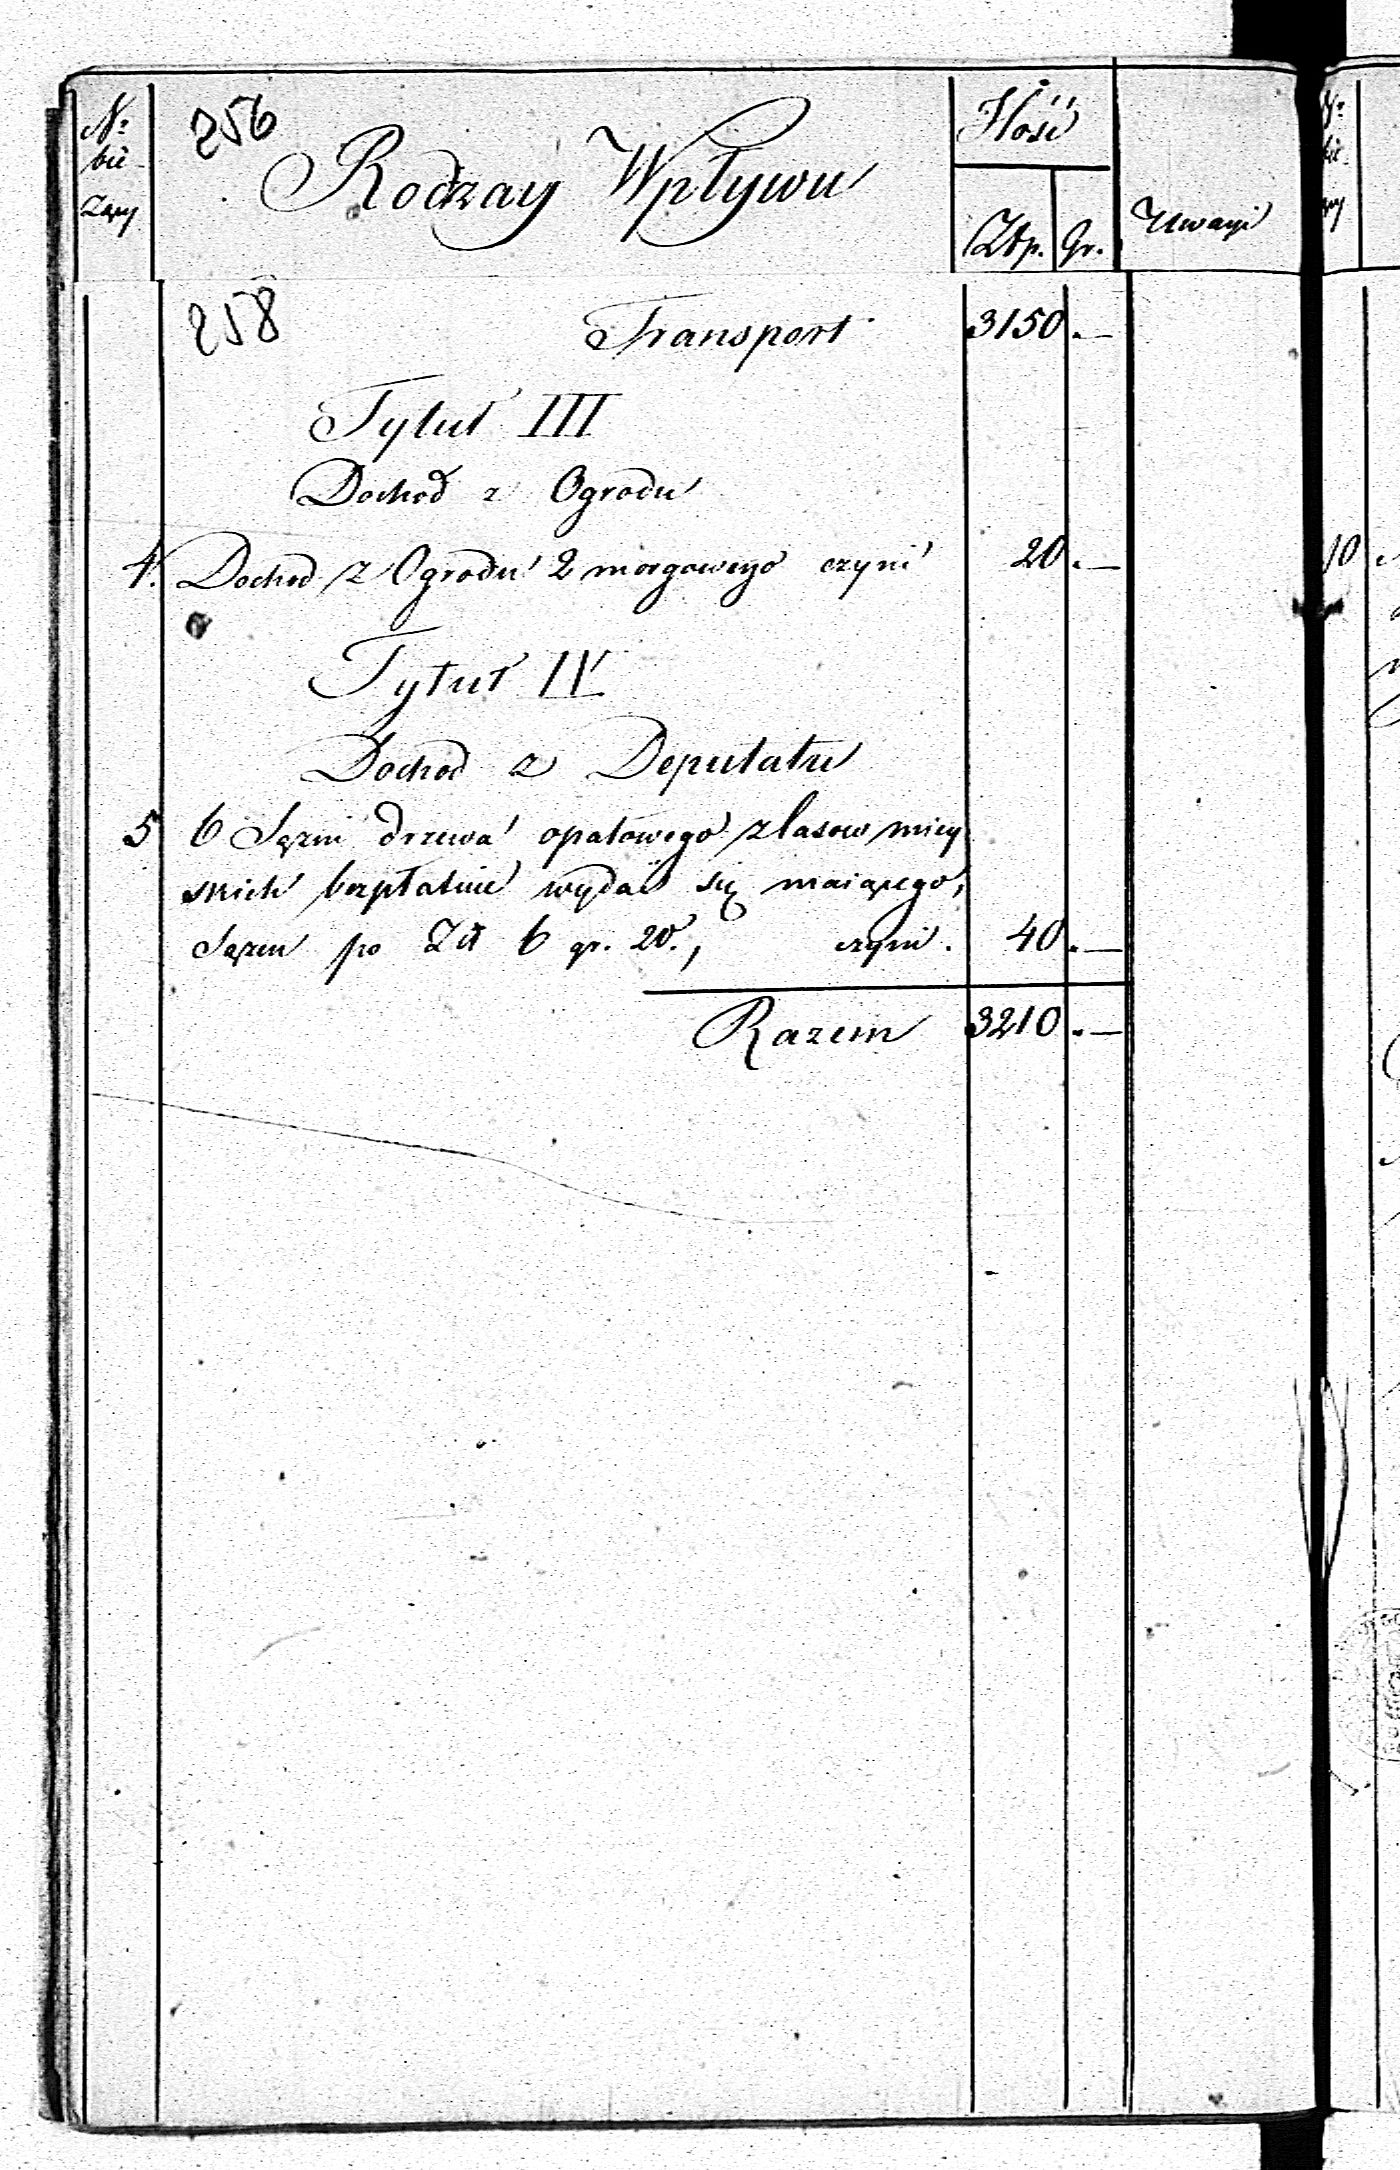 256
Nº bie- żący Rodzay Wpływu Ilość Uwagi
Złp. Gr.
258
Transport 3150 . —
Tytuł III
Dochod z Ogrodu
4. Dochod z Ogrodu 2 morgowego czyni 20 . —
Tytuł IV
Dochod z Deputatu
5 6 Sążni drzewa opałowego z lasow miey
skich bezpłatnie wydać się maiącego,
Sążen po Zł 6 gr. 20., czyni . 40 . —
Razem 3210 . —
10